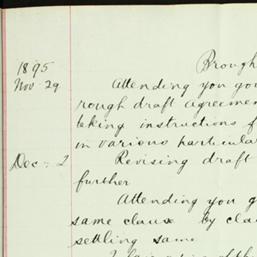 1895 Brough
Nov 29 Attending you
rough draft agreemen
taking instructions f
in various particula
Dec: 2 Revising draft
further
Attending you g
same clause by cla
settling same